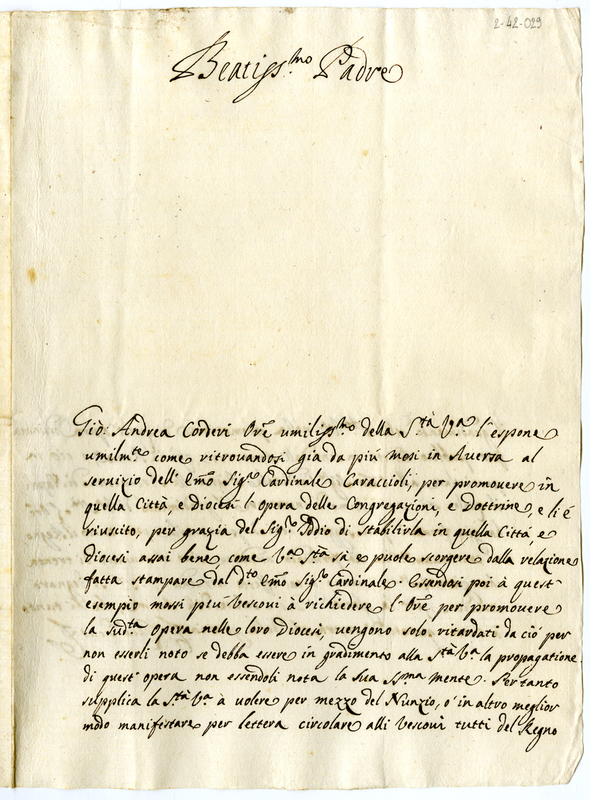 2-42-029
Beatiss.mo Padre
Gio: Andrea Corderi Ore umiliss.mo della S.tà V.ra l'espone
umilm.te come ritrovandosi già da più mesi in Aversa al
servizio dell' Emo Sig.r Cardinale Caraccioli, per promovere in
quella Città, e diocesi l'opera delle Congregazioni, e Dottrine, e li è
riuscito, per grazia del Sig.r Iddio di stabilirla in quella Città e
diocesi assai bene come V.ra S.tà sà e puole scorgere dalla relazione
fatta stampare dal d.to Emo Sig.r Cardinale. Essendosi poi à quest'
esempio mossi più Vescovi à richiedere l'Ore per promovere
la sud.ta opera nelle loro Diocesi, vengono solo ritardati da ciò per
non esserli noto se debba essere in gradimento alla S.tà V.ra la propagatione
di quest' opera non essendoli nota la sua S.ma mente. Per tanto
supplica la S.tà V.ra à volere per mezzo del Nunzio, ò in altro meglior
modo manifestare per lettera circolare alli Vescovi tutti del Regno